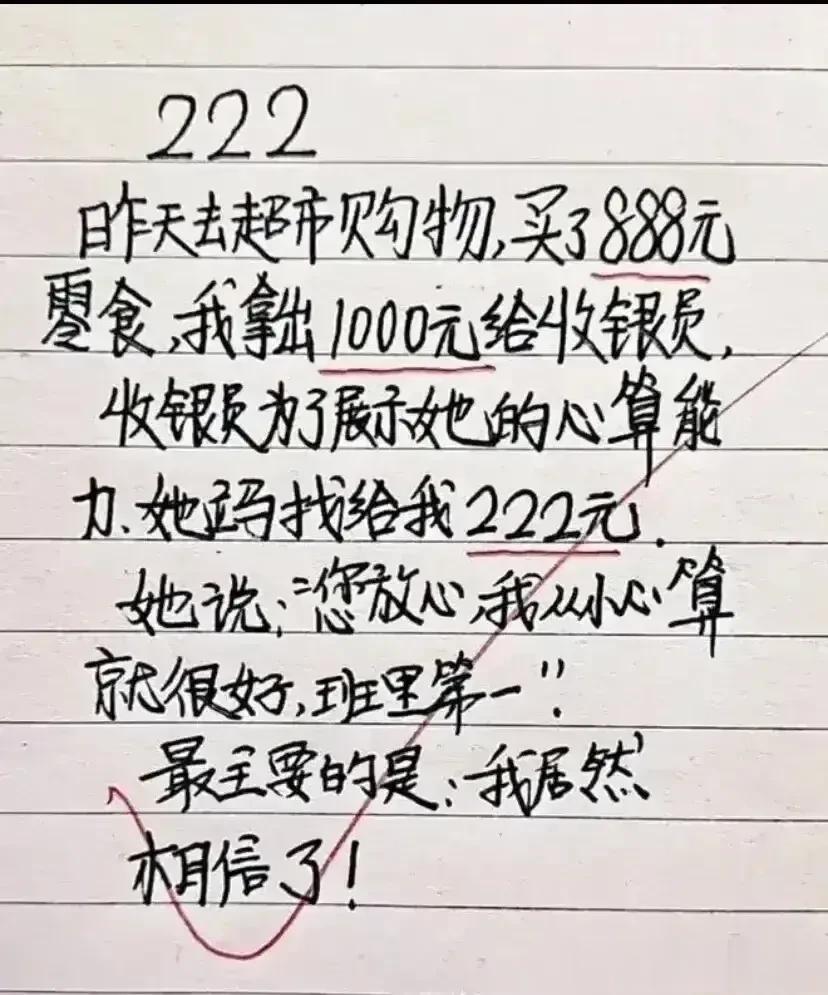 222
昨天去超市购物,买了888元
零食,我拿出1000元给收银员,
收银员为了展示她的心算能
力、她吗找给我222元.
她说:“您放心,我从小心算
就很好,班里第一”!
最主要的是:我居然
相信了!